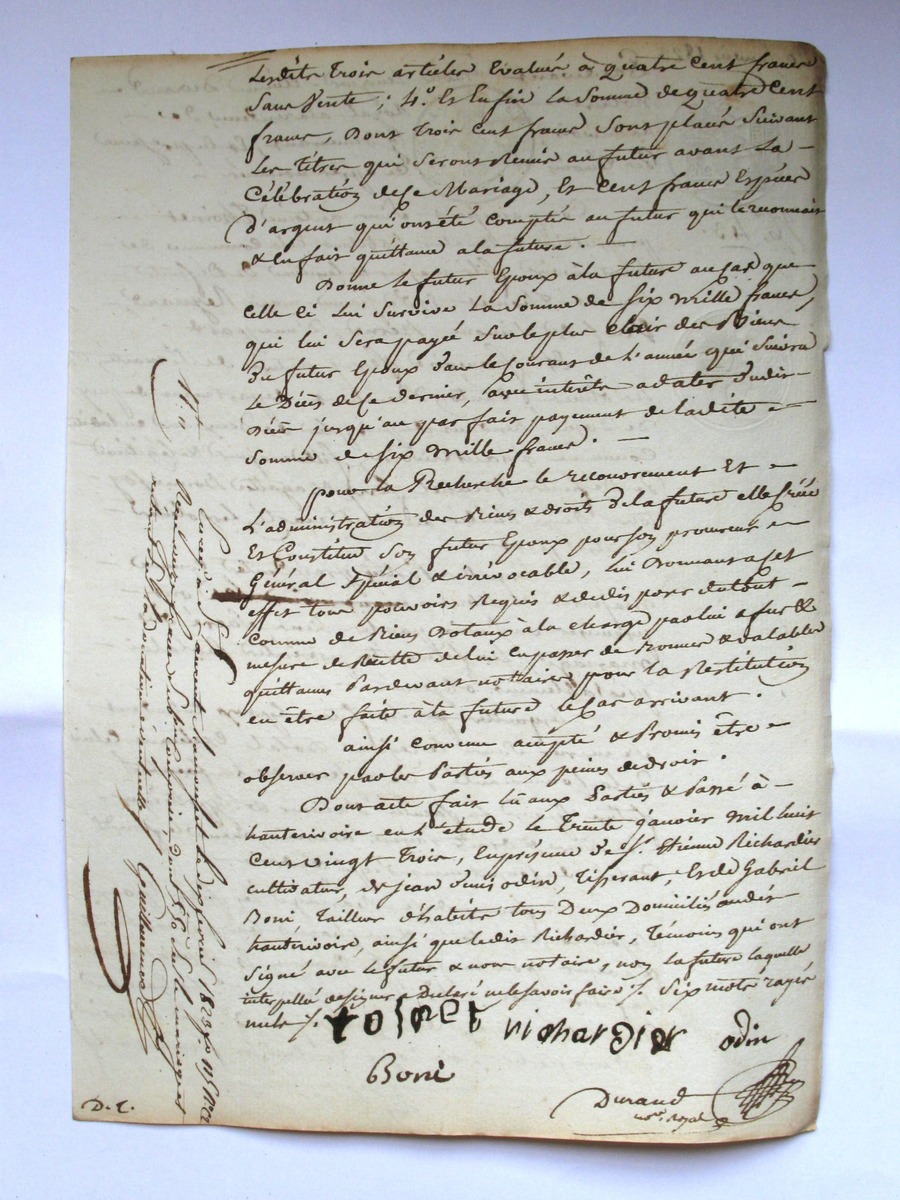 Lesdits trois articles Evalués à quatre Cent francs
Sans Vente ; 4.º Et Enfin la Somme de quatre Cent
francs, Dont trois Cent francs Sont placés Suivant
Les titres qui Seront Remis au futur avant La –
Célébration de Ce Mariage, Et Cent francs Espèces
D'argent qui ont été comptés au futur qui le reconnait
& en fait quittance a la future. —
Donne le futur Epoux à la future au Cas que
celle ci Lui Survive La Somme de Six mille francs,
qui lui Sera payée Sur le plus clair des Biens
Du futur Epoux dans le Courant de L'année qui Suivra
Le Décès de Ce dernier, avec intérêts a dater dudit
Décès jusqu'au parfait payement de Ladite –
Somme de Six mille francs. —
pour la Recherche le recouvrement Et –
L'administration des Biens & droits de la future elle Crée
Et Constitue Son futur Epoux pour Son procureur –
Général Spécial & irrévocable, lui Donnant a cet
effet tous pouvoirs Requis & de disposer du tout –
comme de Biens Dotaux à la charge par lui a fur &
mesure de Recette de lui en passer de Bonnes & valables
quittances Pardevant notaires pour la Restitution
en être faite à la future le Cas arrivant.
ainsi Convenu accepté & Promis être –
observer par les Parties aux peines de droit.
Dont acte fait lû aux Parties & Passé à –
hauterivoire en L'étude le Trente janvier mil huit
Cent vingt Trois, En présence de S.r Etienne Richardier
cultivateur, de jean Denis odin, Tisserant, Et de Gabriel
Boni Tailleur d'habits tous Deux Domiciliés audit
hauterivoire, ainsi que ledit Richardier, Témoins qui ont
Signé avec le futur & nous notaire, non la future laquelle
interpellée de signer a Déclaré ne le savoir faire ./. Six mots rayés
nuls ./.
richardier odin
Boni
Durand
no.re royal
D. E.
Enregistré à St Laurent de